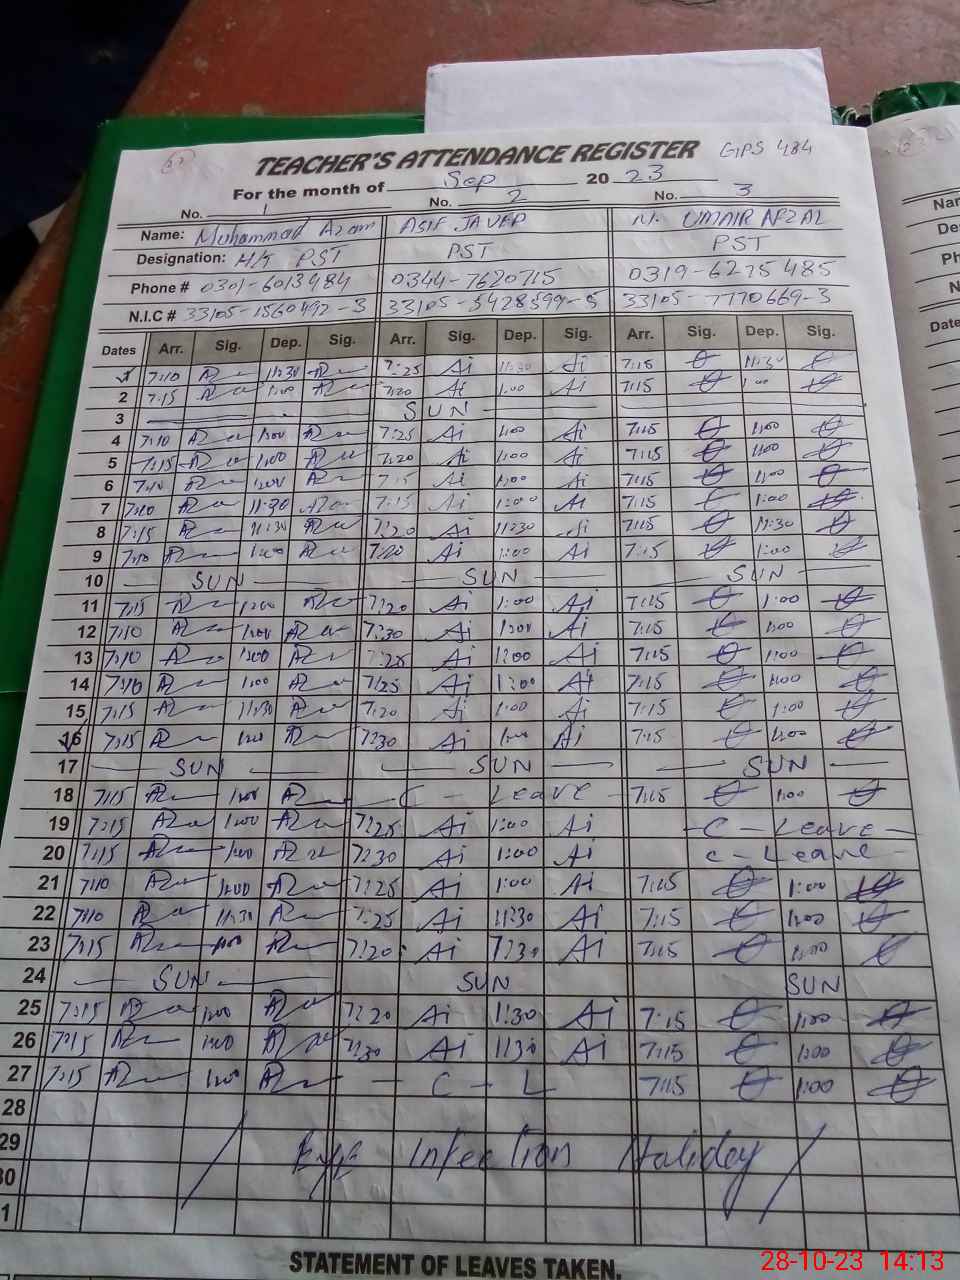 TEACHER'S ATTENDANCE REGISTER GIPS 484
For the month of Sep 2023
No. 1 No. 2 No. 3
Name: Muhammad Azam ASIF JAVED M. UMAIR AFZAL
Designation: H/T PST PST PST
Phone # 0301-6013484 0344-7620715 0319-6275485
N.I.C # 33105-1560492-3 33105-5428599-5 33105-7770669-3
Dates Arr. Sig. Dep. Sig. Arr. Sig. Dep. Sig. Arr. Sig. Dep. Sig.
1 7:10 11:30 7:25 Ai 11:30 Ai 7:15 11:30
2 7:15 1:00 7:20 Ai 1:00 Ai 7:15 1:00
3 SUN
4 7:10 1:00 7:25 Ai 1:00 Ai 7:15 1:00
5 7:15 1:00 7:20 Ai 1:00 Ai 7:15 1:00
6 7:10 1:00 7:15 Ai 1:00 Ai 7:15 1:00
7 7:10 11:30 7:15 Ai 1:00 Ai 7:15 1:00
8 7:15 11:30 7:20 Ai 11:30 Ai 7:15 11:30
9 7:10 1:00 7:20 Ai 1:00 Ai 7:15 1:00
10 SUN SUN SUN
11 7:15 1:00 7:20 Ai 1:00 Ai 7:15 1:00
12 7:10 1:00 7:30 Ai 1:00 Ai 7:15 1:00
13 7:10 1:00 7:25 Ai 1:00 Ai 7:15 1:00
14 7:10 1:00 7:25 Ai 1:00 Ai 7:15 1:00
15 7:15 11:30 7:20 Ai 1:00 Ai 7:15 1:00
16 7:15 1:00 7:30 Ai 1:00 Ai 7:15 1:00
17 SUN SUN SUN
18 7:15 1:00 C - Leave 7:15 1:00
19 7:15 1:00 7:25 Ai 1:00 Ai C - Leave
20 7:15 1:00 7:30 Ai 1:00 Ai C - Leave
21 7:10 1:00 7:25 Ai 1:00 Ai 7:15 1:00
22 7:10 11:30 7:25 Ai 11:30 Ai 7:15 1:00
23 7:15 1:00 7:20 Ai 7:30 Ai 7:15 1:00
24 SUN SUN SUN
25 7:15 1:00 7:20 Ai 1:30 Ai 7:15 1:00
26 7:15 1:00 7:30 Ai 11:30 Ai 7:15 1:00
27 7:15 1:00 C - L 7:15 1:00
28
29 Eye Infection Holiday
30
1
STATEMENT OF LEAVES TAKEN.
28-10-23 14:13